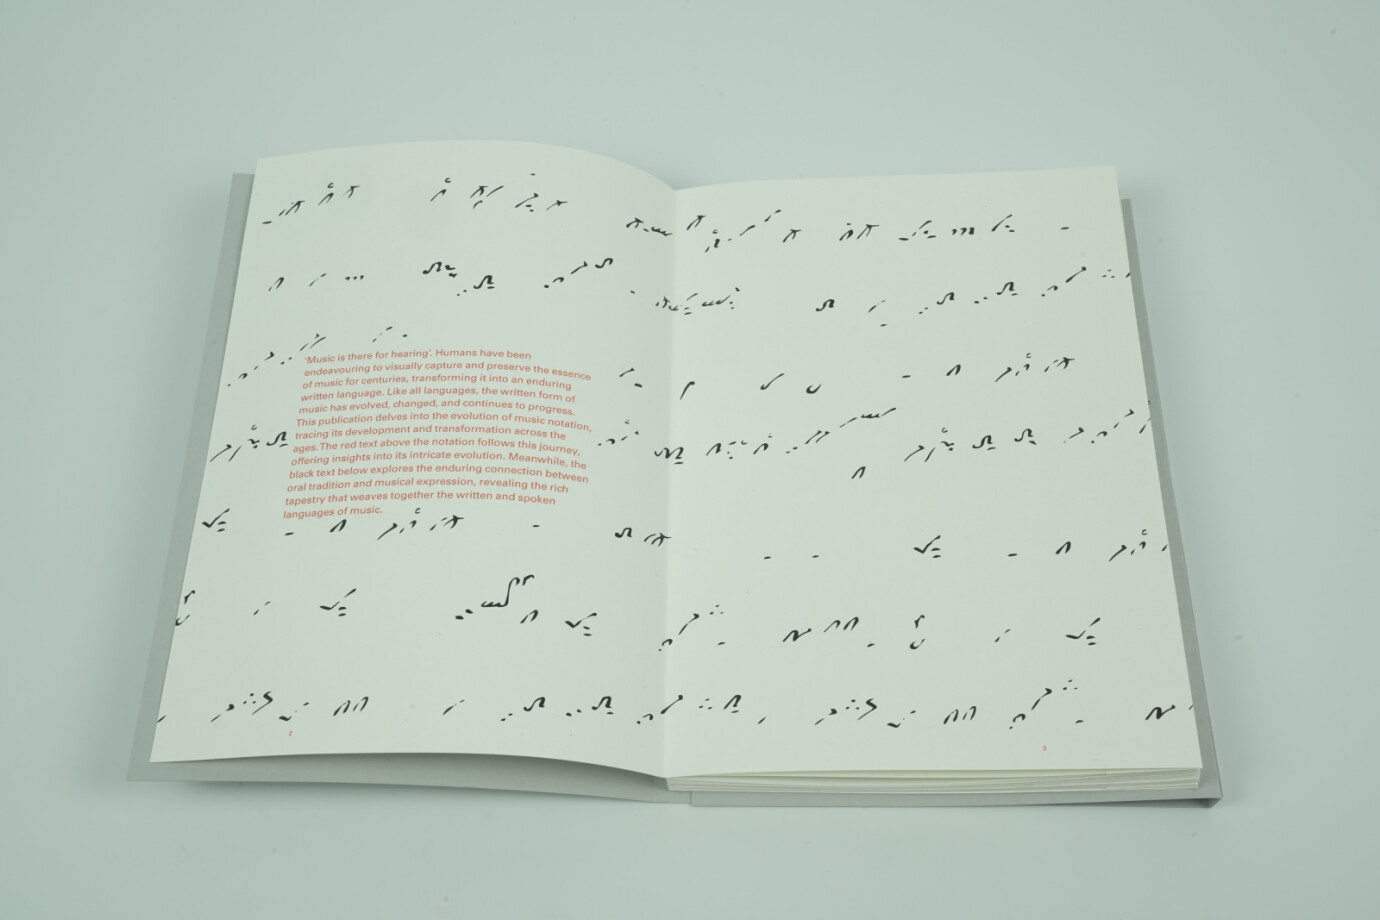 ‘Music is there for hearing’. Humans have been
endeavouring to visually capture and preserve the essence
of music for centuries, transforming it into an enduring
written language. Like all languages, the written form of
music has evolved, changed, and continues to progress.
This publication delves into the evolution of music notation,
tracing its development and transformation across the
ages. The red text above the notation follows this journey,
offering insights into its intricate evolution. Meanwhile, the
black text below explores the enduring connection between
oral tradition and musical expression, revealing the rich
tapestry that weaves together the written and spoken
languages of music.
2
3